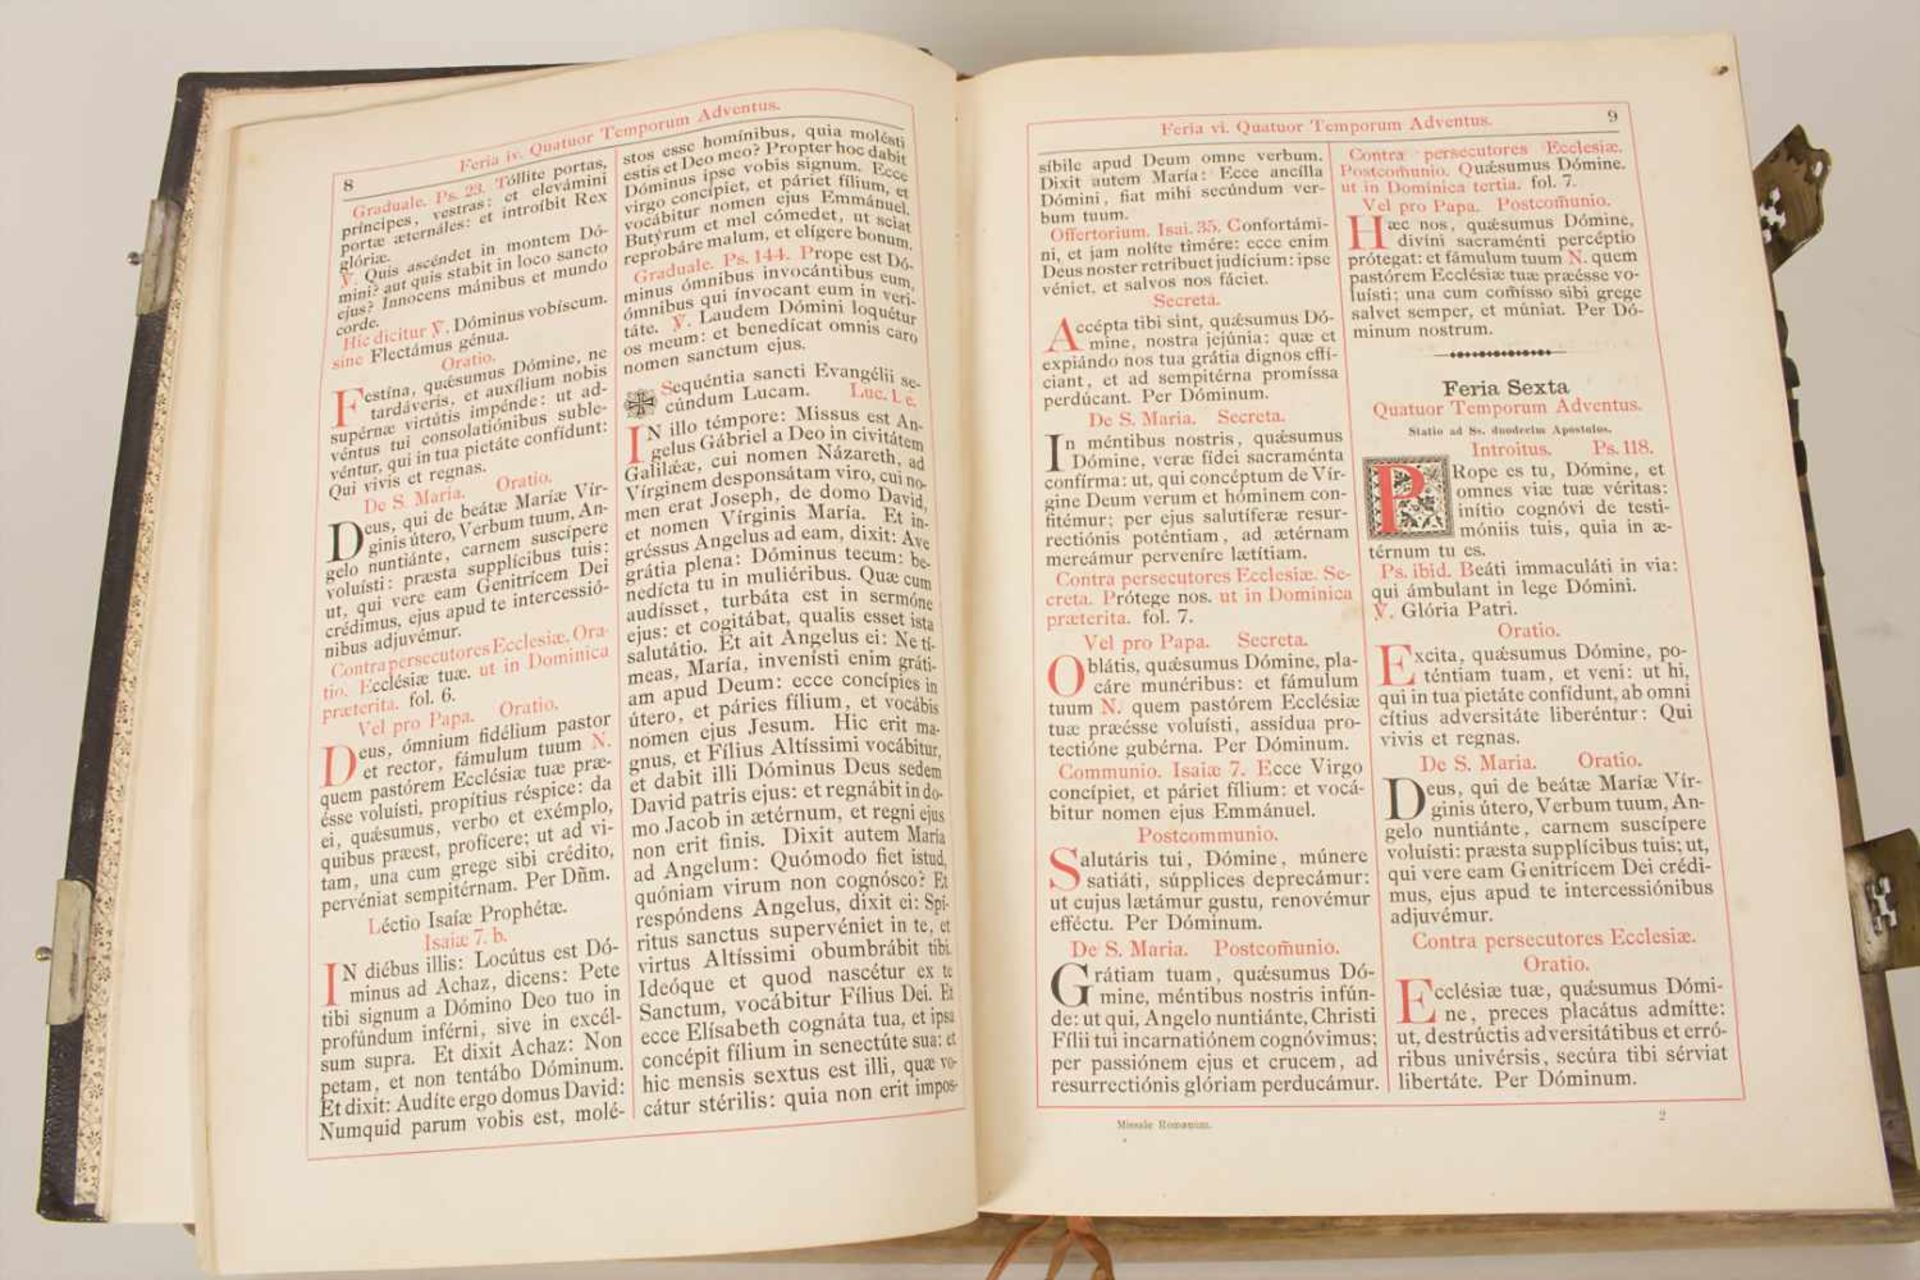 8
Feria iv. Quatuor Temporum Adventus.
Graduale. Ps. 23. Tóllite portas,
príncipes, vestras: et elevámini
portæ æternáles: et introíbit Rex
glóriæ.
℣. Quis ascéndet in montem Dó-
mini? aut quis stabit in loco sancto
ejus? Innocens mánibus et mundo
corde.
Hic dicitur ℣. Dóminus vobíscum.
sine Flectámus génua.
Oratio.
Festína, quǽsumus Dómine, ne
tardáveris, et auxílium nobis
supérnæ virtútis impénde: ut ad-
véntus tui consolatiónibus suble-
véntur, qui in tua pietáte confídunt:
Qui vivis et regnas.
De S. Maria. Oratio.
Deus, qui de beátæ Maríæ Vír-
ginis útero, Verbum tuum, An-
gelo nuntiánte, carnem suscípere
voluísti: præsta supplícibus tuis:
ut, qui vere eam Genitrícem Dei
crédimus, ejus apud te intercessió-
nibus adjuvémur.
Contra persecutores Ecclesiæ. Ora-
tio. Ecclésiæ tuæ. ut in Dominica
præterita. fol. 6.
Vel pro Papa. Oratio.
Deus, ómnium fidélium pastor
et rector, fámulum tuum N.
quem pastórem Ecclésiæ tuæ præ-
ésse voluísti, propítius réspice: da
ei, quǽsumus, verbo et exémplo,
quibus præest, profícere; ut ad vi-
tam, una cum grege sibi crédito,
pervéniat sempitérnam. Per Dñm.
Léctio Isaíæ Prophétæ.
Isaiæ 7. b.
IN diébus illis: Locútus est Dó-
minus ad Achaz, dicens: Pete
tibi signum a Dómino Deo tuo in
profúndum inférni, sive in excél-
sum supra. Et dixit Achaz: Non
petam, et non tentábo Dóminum.
Et dixit: Audíte ergo domus David:
Numquid parum vobis est, molé-
stos esse homínibus, quia molésti
estis et Deo meo? Propter hoc dabit
Dóminus ipse vobis signum. Ecce
virgo concípiet, et páriet fílium, et
vocábitur nomen ejus Emmánuel.
Butýrum et mel cómedet, ut sciat
reprobáre malum, et elígere bonum.
Graduale. Ps. 144. Prope est Dó-
minus ómnibus invocántibus eum,
ómnibus qui ínvocant eum in veri-
táte. ℣. Laudem Dómini loquétur
os meum: et benedícat omnis caro
nomen sanctum ejus.
Sequéntia sancti Evangélii se-
cúndum Lucam. Luc. 1. c.
IN illo témpore: Missus est An-
gelus Gábriel a Deo in civitátem
Galilǽæ, cui nomen Názareth, ad
Vírginem desponsátam viro, cui no-
men erat Joseph, de domo David,
et nomen Vírginis María. Et in-
gréssus Angelus ad eam, dixit: Ave
grátia plena: Dóminus tecum: be-
nedícta tu in muliéribus. Quæ cum
audísset, turbáta est in sermóne
ejus: et cogitábat, qualis esset ista
salutátio. Et ait Angelus ei: Ne tí-
meas, María, invenísti enim gráti-
am apud Deum: ecce concípies in
útero, et páries fílium, et vocábis
nomen ejus Jesum. Hic erit ma-
gnus, et Fílius Altíssimi vocábitur,
et dabit illi Dóminus Deus sedem
David patris ejus: et regnábit in do-
mo Jacob in ætérnum, et regni ejus
non erit finis. Dixit autem María
ad Angelum: Quómodo fiet istud,
quóniam virum non cognósco? Et
respóndens Angelus, dixit ei: Spí-
ritus sanctus supervéniet in te, et
virtus Altíssimi obumbrábit tibi.
Ideóque et quod nascétur ex te
Sanctum, vocábitur Fílius Dei. Et
ecce Elísabeth cognáta tua, et ipsa
concépit fílium in senectúte sua: et
hic mensis sextus est illi, quæ vo-
cátur stérilis: quia non erit impos-
Feria vi. Quatuor Temporum Adventus.
9
síbile apud Deum omne verbum.
Dixit autem María: Ecce ancílla
Dómini, fiat mihi secúndum ver-
bum tuum.
Offertorium. Isai. 35. Confortámi-
ni, et jam nolíte timére: ecce enim
Deus noster retríbuet judícium: ipse
véniet, et salvos nos fáciet.
Secreta.
Accépta tibi sint, quǽsumus Dó-
mine, nostra jejúnia: quæ et
expiándo nos tua grátia dignos effí-
ciant, et ad sempitérna promíssa
perdúcant. Per Dóminum.
De S. Maria. Secreta.
In méntibus nostris, quǽsumus
Dómine, veræ fídei sacraménta
confírma: ut, qui concéptum de Vír-
gine Deum verum et hóminem con-
fitémur; per ejus salutíferæ resur-
rectiónis poténtiam, ad ætérnam
mereámur perveníre lætítiam.
Contra persecutores Ecclesiæ. Se-
creta. Prótege nos. ut in Dominica
præterita. fol. 7.
Vel pro Papa. Secreta.
Oblátis, quǽsumus Dómine, pla-
cáre munéribus: et fámulum
tuum N. quem pastórem Ecclésiæ
tuæ præésse voluísti, assídua pro-
tectióne gubérna. Per Dóminum.
Communio. Isaiæ 7. Ecce Virgo
concípiet, et páriet fílium: et vocá-
bitur nomen ejus Emmánuel.
Postcommunio.
Salutáris tui, Dómine, múnere
satiáti, súpplices deprecámur:
ut cujus lætámur gustu, renovémur
efféctu. Per Dóminum.
De S. Maria. Postcom̃unio.
Grátiam tuam, quǽsumus Dó-
mine, méntibus nostris infún-
de: ut qui, Angelo nuntiánte, Christi
Fílii tui incarnatiónem cognóvimus;
per passiónem ejus et crucem, ad
resurrectiónis glóriam perducámur.
Contra persecutores Ecclesiæ.
Postcom̃unio. Quǽsumus Dómine.
ut in Dominica tertia. fol. 7.
Vel pro Papa. Postcom̃unio.
Hæc nos, quǽsumus Dómine,
divíni sacraménti percéptio
prótegat: et fámulum tuum N. quem
pastórem Ecclésiæ tuæ præésse vo-
luísti; una cum com̃ísso sibi grege
salvet semper, et múniat. Per Dó-
minum nostrum.
Feria Sexta
Quatuor Temporum Adventus.
Statio ad Ss. duodecim Apostolos.
Introitus. Ps. 118.
PRope es tu, Dómine, et
omnes viæ tuæ véritas:
inítio cognóvi de testi-
móniis tuis, quia in æ-
térnum tu es.
Ps. ibid. Beáti immaculáti in via:
qui ámbulant in lege Dómini.
℣. Glória Patri.
Oratio.
Excita, quǽsumus Dómine, po-
téntiam tuam, et veni: ut hi,
qui in tua pietáte confídunt, ab omni
cítius adversitáte liberéntur: Qui
vivis et regnas.
De S. Maria. Oratio.
Deus, qui de beátæ Maríæ Vír-
ginis útero, Verbum tuum, An-
gelo nuntiánte, carnem suscípere
voluísti: præsta supplícibus tuis; ut,
qui vere eam Genitrícem Dei crédi-
mus, ejus apud te intercessiónibus
adjuvémur.
Contra persecutores Ecclesiæ.
Oratio.
Ecclésiæ tuæ, quǽsumus Dómi-
ne, preces placátus admítte:
ut, destrúctis adversitátibus et erró-
ribus univérsis, secúra tibi sérviat
libertáte. Per Dóminum.
Missale Romanum.
2